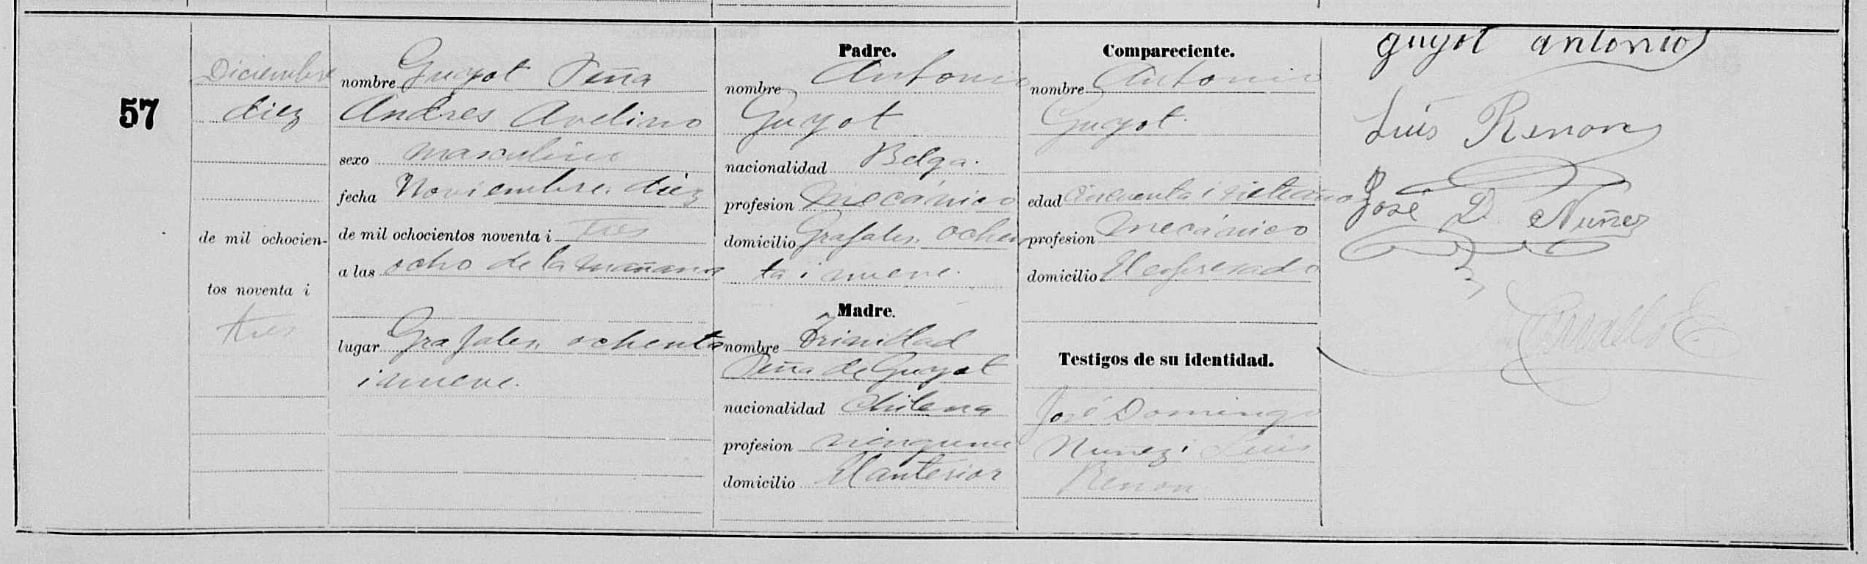 57
Diciembre
diez
de mil ochocien-
tos noventa i
tres
nombre Guyot Peña
Andres Avelino
sexo masculino
fecha Noviembre diez
de mil ochocientos noventa i tres
a las ocho de la mañana
lugar Grajales ochenta
i nueve.
Padre.
nombre Antonio
Guyot
nacionalidad Belga.
profesion mecánico
domicilio Grajales ochen
ta i nueve.
Madre.
nombre Trinidad
Peña de Guyot
nacionalidad chilena
profesion ninguna
domicilio El anterior
Compareciente.
nombre Antonio
Guyot.
edad cincuenta i siete años
profesion mecánico
domicilio El espresado
Testigos de su identidad.
José Domingo
Nuñez i Luis
Renon
guyot antonio
Luis Renon
José D. Nuñez